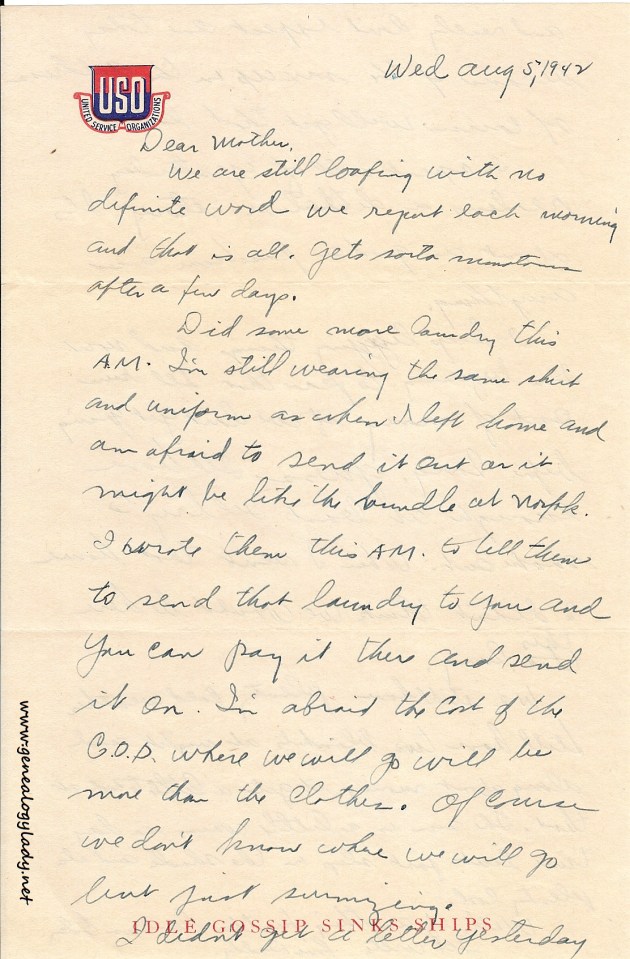 USO
UNITED SERVICE ORGANIZATIONS
Wed Aug 5, 1942
Dear Mother,
We are still loafing with no
definite word we report each morning
and that is all. Gets sorta monotonus
after a few days.
Did some more laundry this
A.M. I'm still wearing the same shirt
and uniform as when I left home and
am afraid to send it out or it
might be like the bundle at Norfolk.
I wrote them this A.M. to tell them
to send that laundry to you and
you can pay it there and send
it on. I'm afraid the cost of the
C.O.D. where we will go will be
more than the clothes. Of course
we don't know where we will go
but just surmizing.
I didn't get a letter yesterday
IDLE GOSSIP SINKS SHIPS
www.genealogylady.net